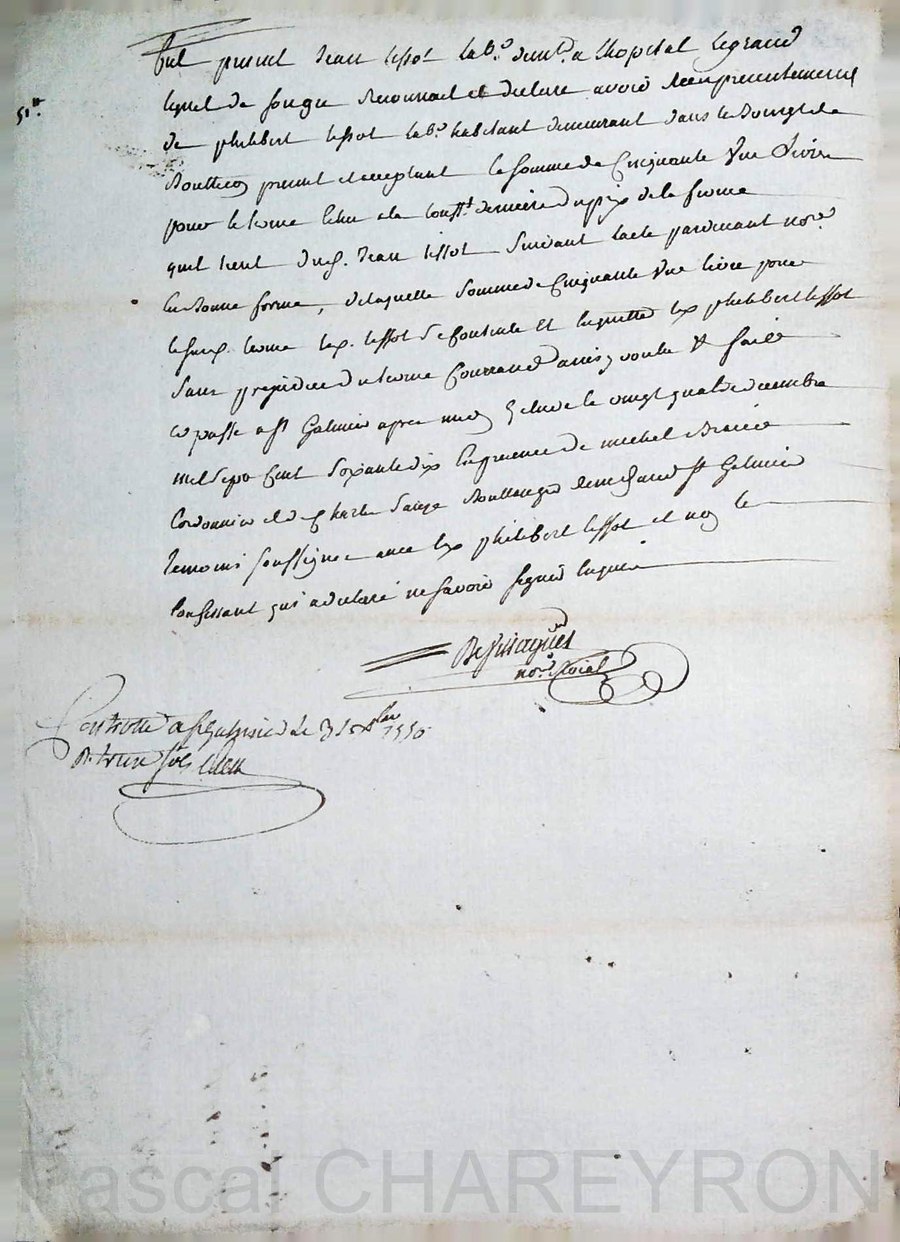 fut present Jean tissot lab.r demt. a lhopital legrand
51tt.
lequel de son gré reconnait et declare avoir recu presentement
de philibert tissot lab.r habitant demeurant dans le Bourg de
present et acceptant la somme de Cinquante Une Livre
pour le terme échu a la touss.t derniere du prix de la ferme
quil tient dud. Jean tissot suivant lacte pardevant no.re
en Bonne forme, de laquelle somme de Cinquante Une livre pour
le susd. terme led. tissot se contente et en quitte led. philibert tissot
sans prejudice du terme Courrant ainsy voulu & fait
et passé a St Galmier apres midy le vingt quatre decembre
mil sept Cent soixante dix en presence de michel
Cordonnier et de Charle Boullenger dem.t aud. St Galmier
temoins soussignés avec led. philibert tissot et non le
Confessant qui a declaré ne savoir signer enquis
no.re Roial
Controllé a St Galmier le 31 Xbre 1770
R. treize sols
Pascal CHAREYRON